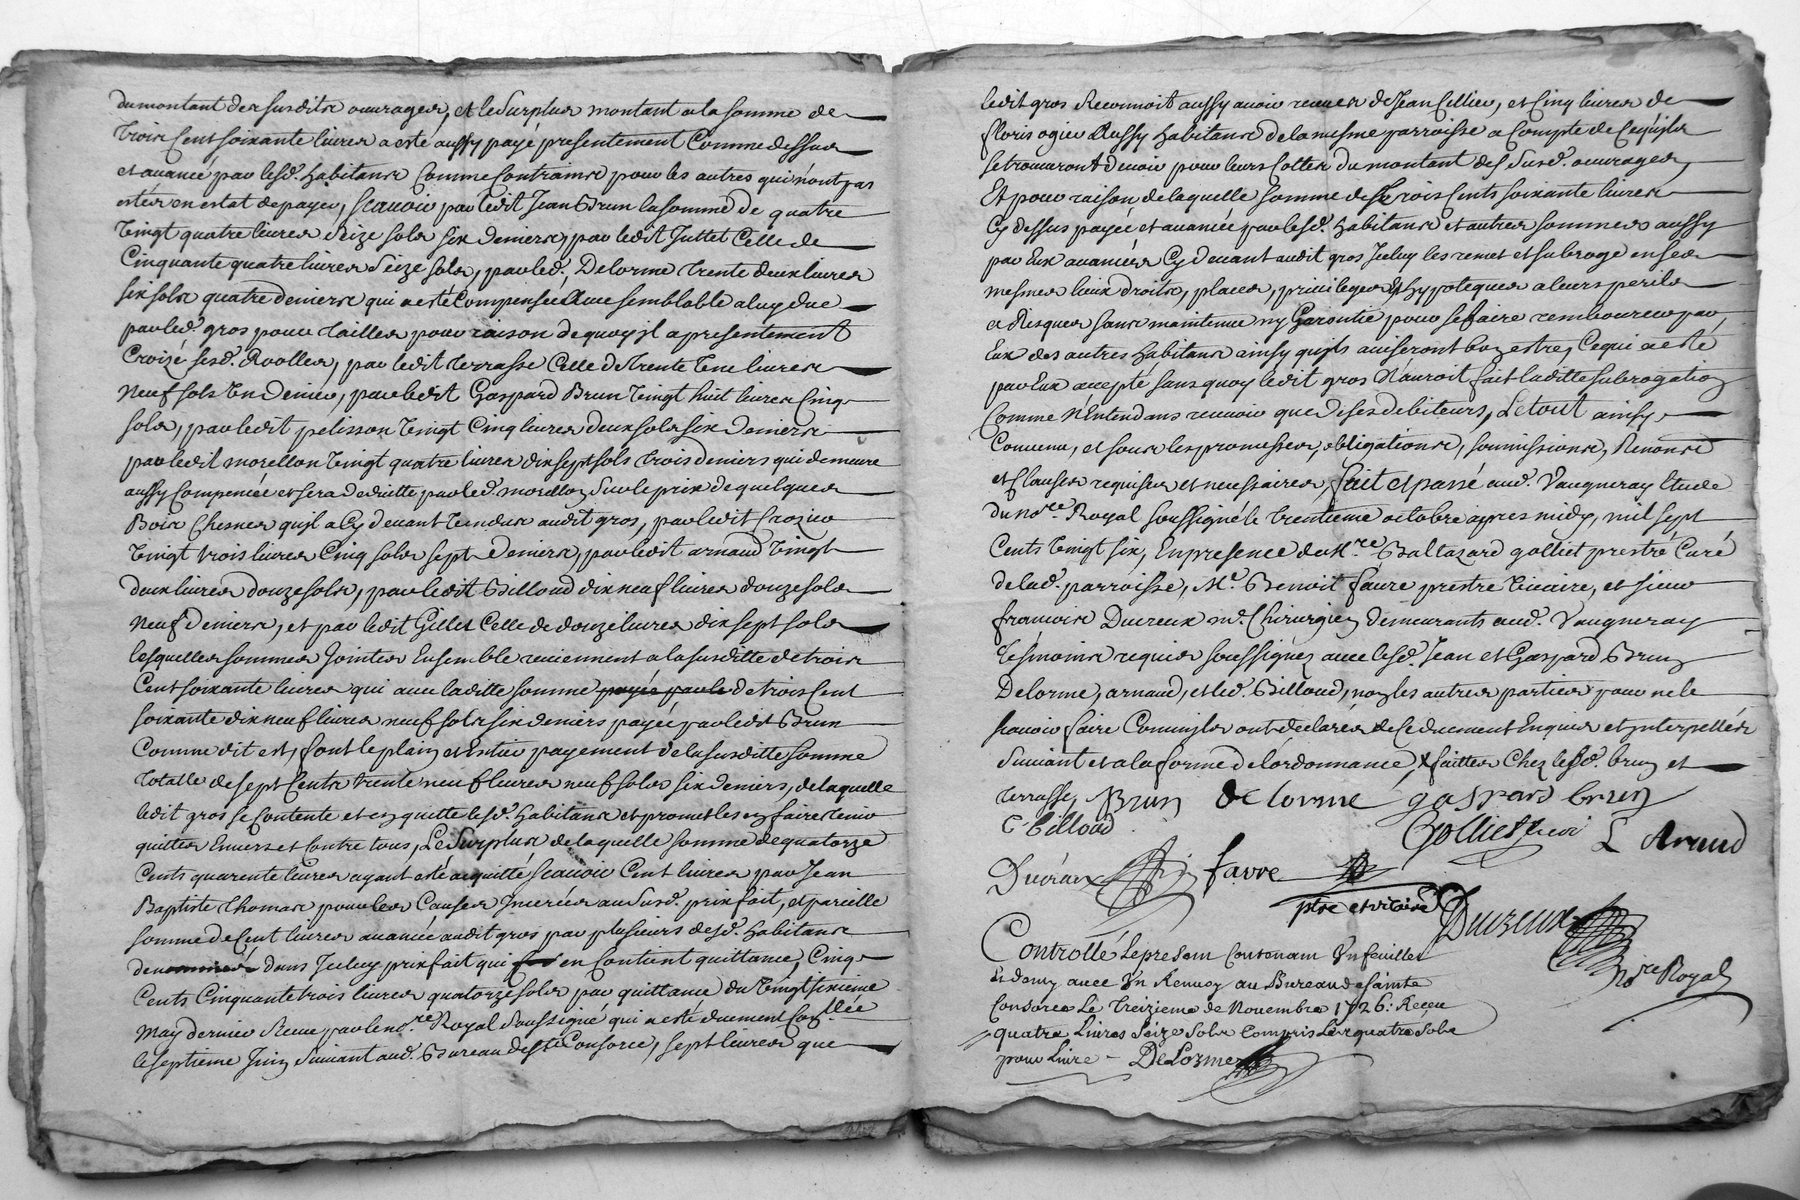 du montant des susdits ouvrages, et le surplus montant a la somme de
Trois Cent soixante livres a esté aussy payé presentement Comme dessus
et avancé par lesd. habitans Comme Contrains pour les autres qui n'ont pas
estés en estat de payer, scauoir par ledit Jean Brun la somme de quatre
Vingt quatre livres seize sols six deniers, par ledit Juttet Celle de
Cinquante quatre livres seize sols, par led. Delorme trente deux livres
six sols quatre deniers qui a esté Compensée avec semblable a luy due
par led. gros pour tailles pour raison de quoy il a presentement
Croizé sesd. Roolles, par ledit terrasse Celle de trente une livres
neuf sols un denier, par ledit Gaspard Brun vingt huit livres Cinq
sols, par ledit pelisson vingt Cinq livres deux sols six deniers
par ledit morellon vingt quatre livres dix sept sols trois deniers qui demeure
aussy Compensée et sera deduitte par led. morellon sur le prix de quelques
Bois Chesnes qu'il a Cy devant vendus audit gros, par ledit Crozier
vingt trois livres Cinq sols sept deniers, par ledit arnaud vingt
deux livres douze sols, par ledit Billoud dix neuf livres douze sols
neuf deniers, et par ledit Gillet Celle de douze livres dix sept sols
lesquelles sommes Jointes Ensemble reviennent a la susditte de trois
Cent soixante livres qui avec laditte somme payée par le de trois Cent
soixante dix neuf livres neuf sols six deniers payée par ledit Brun
Comme dit est, font le plain et Entier payement de la susditte somme
totalle de sept Cents trente neuf livres neuf sols six deniers, de laquelle
ledit gros se Contente et en quitte lesd. habitans et promet les en faire tenir
quittes Envers et Contre tous, Le Surplus de laquelle somme de quatorze
Cents quarente livres ayant esté acquitté scauoir Cent livres par Jean
Baptiste thomas pour les Causes Inserées au susd. prixfait, et pareille
somme de Cent livres avancée audit gros par plusieurs desd. habitans
denommés dans Iceluy prixfait qui en Contient quittance, Cinq
Cents Cinquante trois livres quatorze sols par quittance du vingt sixieme
May dernier Receue par le no.re Royal soussigné qui a esté duement Con.llée
le septieme Juin suivant aud. Bureau de S.te Consorce, sept livres que
ledit gros Reconnoit aussy avoir receues de Jean Cellier, et Cinq livres de
floris ogier Aussy habitans de la mesme parroisse a Compte de Ce qu'ils
se trouveront devoir pour leurs Cottes du montant des susd. ouvrages,
Et pour raison de laquelle somme de trois Cents soixante livres
Cy dessus payée et avancée par lesd. habitans et autres sommes aussy
par Eux avancées Cy devant audit gros Iceluy les remet et subroge en ses
mesmes lieux droits, places, privileges et hypoteques a leurs perils
et Risques sans maintenue ny Garentie pour se faire rembourcer par
Eux des autres habitans ainsy qu'ils aviseront bon estre, Ce qui a esté
par Eux accepté sans quoy ledit gros N'auroit fait laditte subrogation
Comme N'Entendans recevoir que de ses debiteurs, Le tout ainsy
Convenu, et sous les promesses, obligations, soumissions, Renons
et Clauses requises et necessaires, fait et passé aud. Vaugneray Etude
du No.re Royal soussigné le trentieme octobre apres midy, mil sept
Cents Vingt six, En presence de M.re Baltazard golliet prestre Curé
de lad. parroisse, M.e Benoit favre prestre vicaire, et sieur
francois Ducreux m.e Chirurgien demeurants aud. Vaugneray
tesmoins requis soussignez avec lesd. Jean et Gaspard Brun
Delorme, arnaud, et led. Billoud, non les autres parties pour ne le
scauoir faire Comm'ils ont declarés de Ce duement Enquis et Interpellés
suivant et a la forme de l'ordonnance, faittes Chez lesd. brun et
terrasse, Brun de lorme gaspard brun
C billoud Golliet curé L Arnaud
Ducreux favre
ptre et vicaire Ducreux
no.re Royal
Controllé le present Contenam Un feuillet
Et demy avec Un Renvoy au Bureau de sainte
Consorce Le treizieme de Novembre 1726. Receu
quatre Livres seize sols Compris Les quatre sols
pour Livre - DeLorme